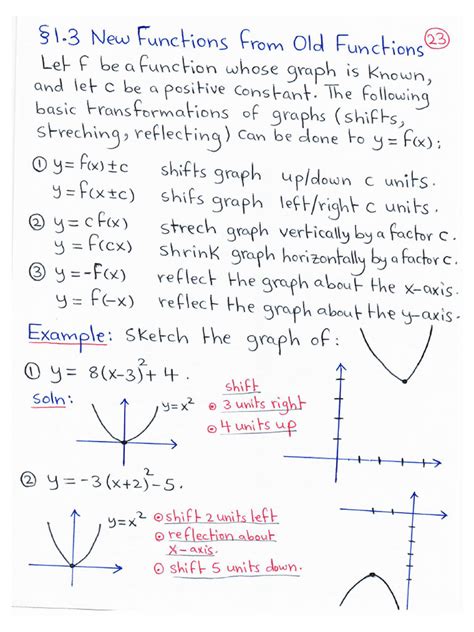 §1.3 New Functions from Old Functions 23
Let f be a function whose graph is known,
and let c be a positive constant. The following
basic transformations of graphs (shifts,
streching, reflecting) can be done to y=f(x):
① y=f(x)±c shifts graph up/down c units.
y=f(x±c) shifs graph left/right c units.
② y=cf(x) strech graph vertically by a factor c.
y=f(cx) shrink graph horizontally by a factor c.
③ y=-f(x) reflect the graph about the x-axis.
y=f(-x) reflect the graph about the y-axis.
Example: Sketch the graph of:
① y= 8(x-3)²+4.
shift
soln: y=x² 3 units right
4 units up
② y=-3(x+2)²-5.
y=x² shift 2 units left
reflection about
x-axis.
shift 5 units down.